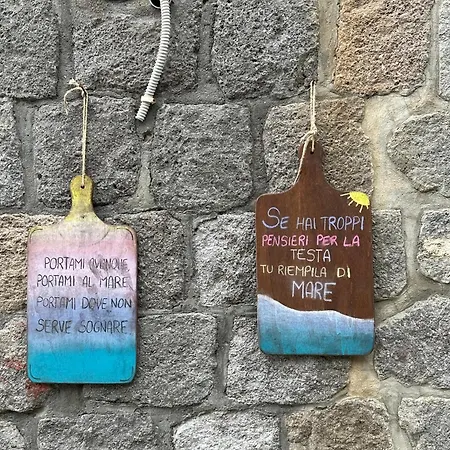 PORTAMI OVUNQUE
PORTAMI AL MARE
PORTAMI DOVE NON
SERVE SOGNARE
SE HAI TROPPI
PENSIERI PER LA
TESTA
TU RIEMPILA DI
MARE